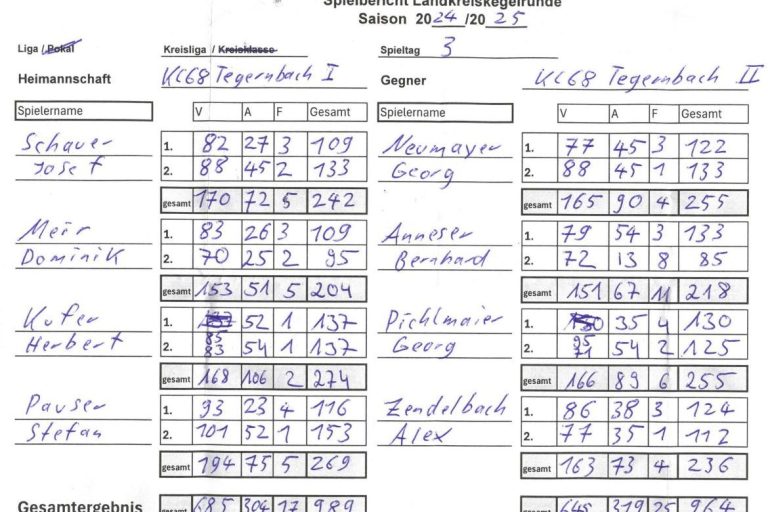 Spielbericht Landkreiskegelrunde
Saison 2024/2025
Liga / Pokal Kreisliga / Kreisklasse Spieltag 3
Heimannschaft KC68 Tegernbach I Gegner KC68 Tegernbach II
Spielername V A F Gesamt Spielername V A F Gesamt
Schauer 1. 82 27 3 109 Neumayer 1. 77 45 3 122
Josef 2. 88 45 2 133 Georg 2. 88 45 1 133
gesamt 170 72 5 242 gesamt 165 90 4 255
Meir 1. 83 26 3 109 Anneser 1. 79 54 3 133
Dominik 2. 70 25 2 95 Bernhard 2. 72 13 8 85
gesamt 153 51 5 204 gesamt 151 67 11 218
Kufer 1. 52 1 137 Pichlmaier 1. 35 4 130
Herbert 2. 85 83 54 1 137 Georg 2. 95 71 54 2 125
gesamt 168 106 2 274 gesamt 166 89 6 255
Pauser 1. 93 23 4 116 Zendelbach 1. 86 38 3 124
Stefan 2. 101 52 1 153 Alex 2. 77 35 1 112
gesamt 194 75 5 269 gesamt 163 73 4 236
Gesamtergebnis gesamt 685 304 17 989 gesamt 645 319 25 964